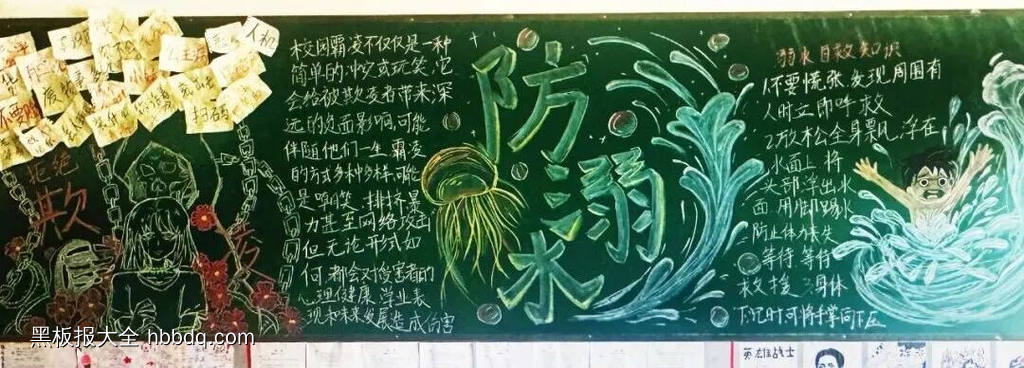 拒绝
欺
凌
校园霸凌不仅仅是一种
简单的冲突或玩笑,它
会给被欺凌者带来深
远的负面影响,可能
伴随他们一生 霸凌
的方式多种多样,可能
是嘲笑、排挤、暴
力甚至网络攻击
但无论形式如
何,都会对受害者的
心理健康、学业表
现和未来发展造成伤害
防
溺
水
溺水自救知识
1.不要慌张,发现周围有
人时立即呼救
2.放松全身飘浮在
水面上,将
头部浮出水
面,用脚踢水
防止体力丧失
等待等待
救援 3.身体
下沉时可将手掌向下压
扫码
黑板报大全 hbbdq.com
英雄战士